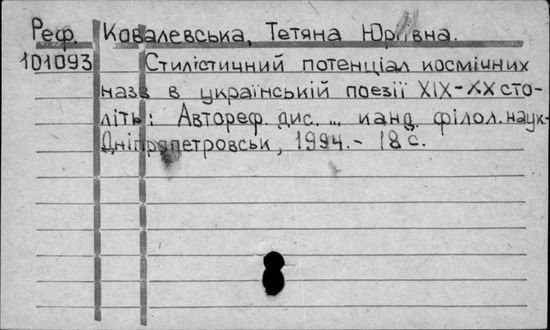 Реф. Ковалевська, Тетяна Юріївна.
101093 Стилістичний потенціал космічних
назв в українській поезії XIX-XX сто-
літь: Автореф. дис. ... канд. філол. наук.-
Дніпропетровськ, 1994.- 18 с.